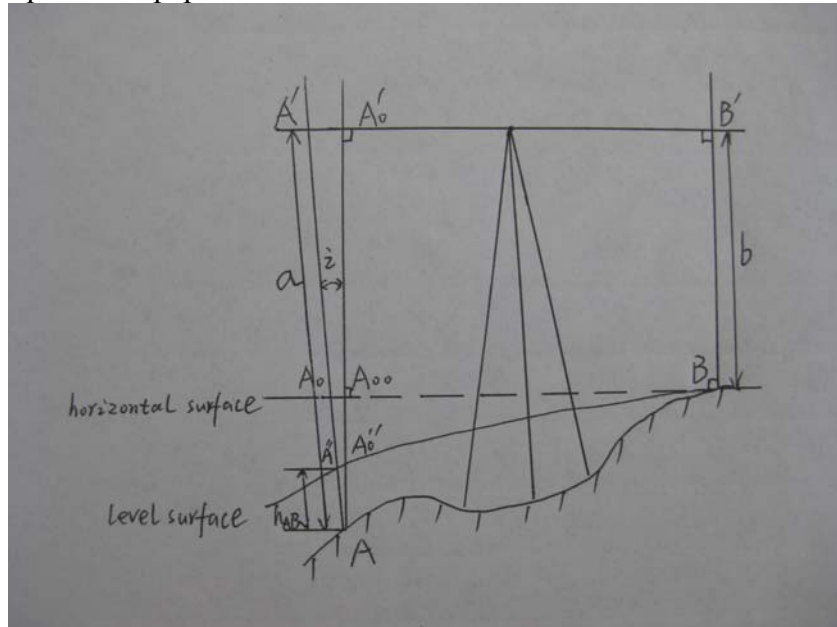 A′ A₀′ B′
a i b
A₀ A₀₀ B
horizontal surface
A″ A₀″
level surface
hAB
A